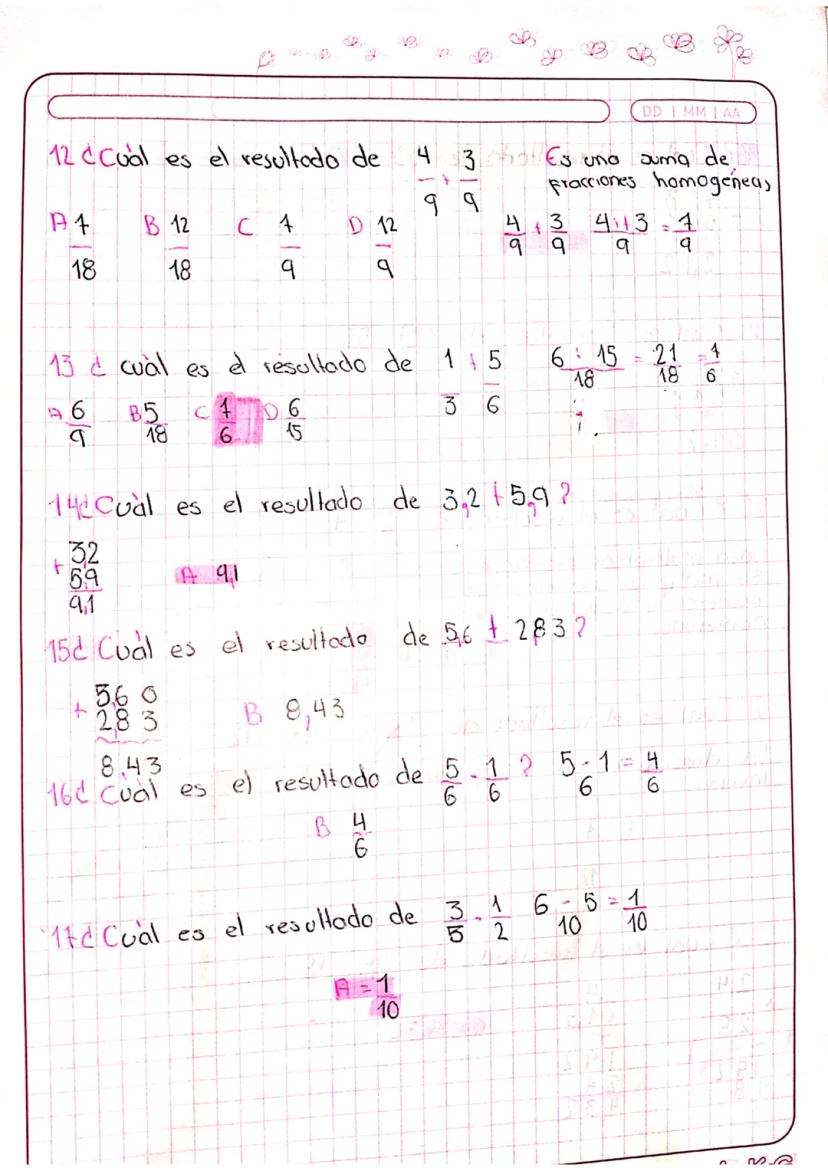 DD | MM | AA
12 ¿Cuàl es el resultado de 4/9 + 3/9 Es una suma de fracciones homogéneas
A 7/18 B 12/18 C 7/9 D 12/9 4/9 + 3/9 4+3/9 = 7/9
13 ¿ cuàl es el resultado de 1/3 + 5/6 6 + 15/18 = 21/18 = 7/6
A 6/9 B 5/18 C 7/6 D 6/15
14 ¿Cuàl es el resultado de 3,2 + 5,9 ?
+ 3,2
5,9
9,1
A 9,1
15 ¿ Cuàl es el resultado de 5,6 + 2,83 ?
+ 5,6 0
2,8 3
8,43
B 8,43
16 ¿ Cuàl es el resultado de 5/6 - 1/6 ? 5 - 1/6 = 4/6
B 4/6
17 ¿ Cuàl es el resultado de 3/5 - 1/2 6 - 5/10 = 1/10
A = 1/10